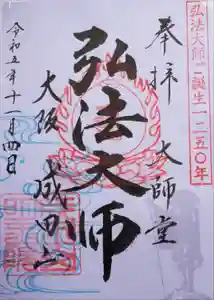 弘法大師ご誕生一二五〇年
奉拝 大師堂
弘法大師
大阪 成田山
令和五年十一月四日